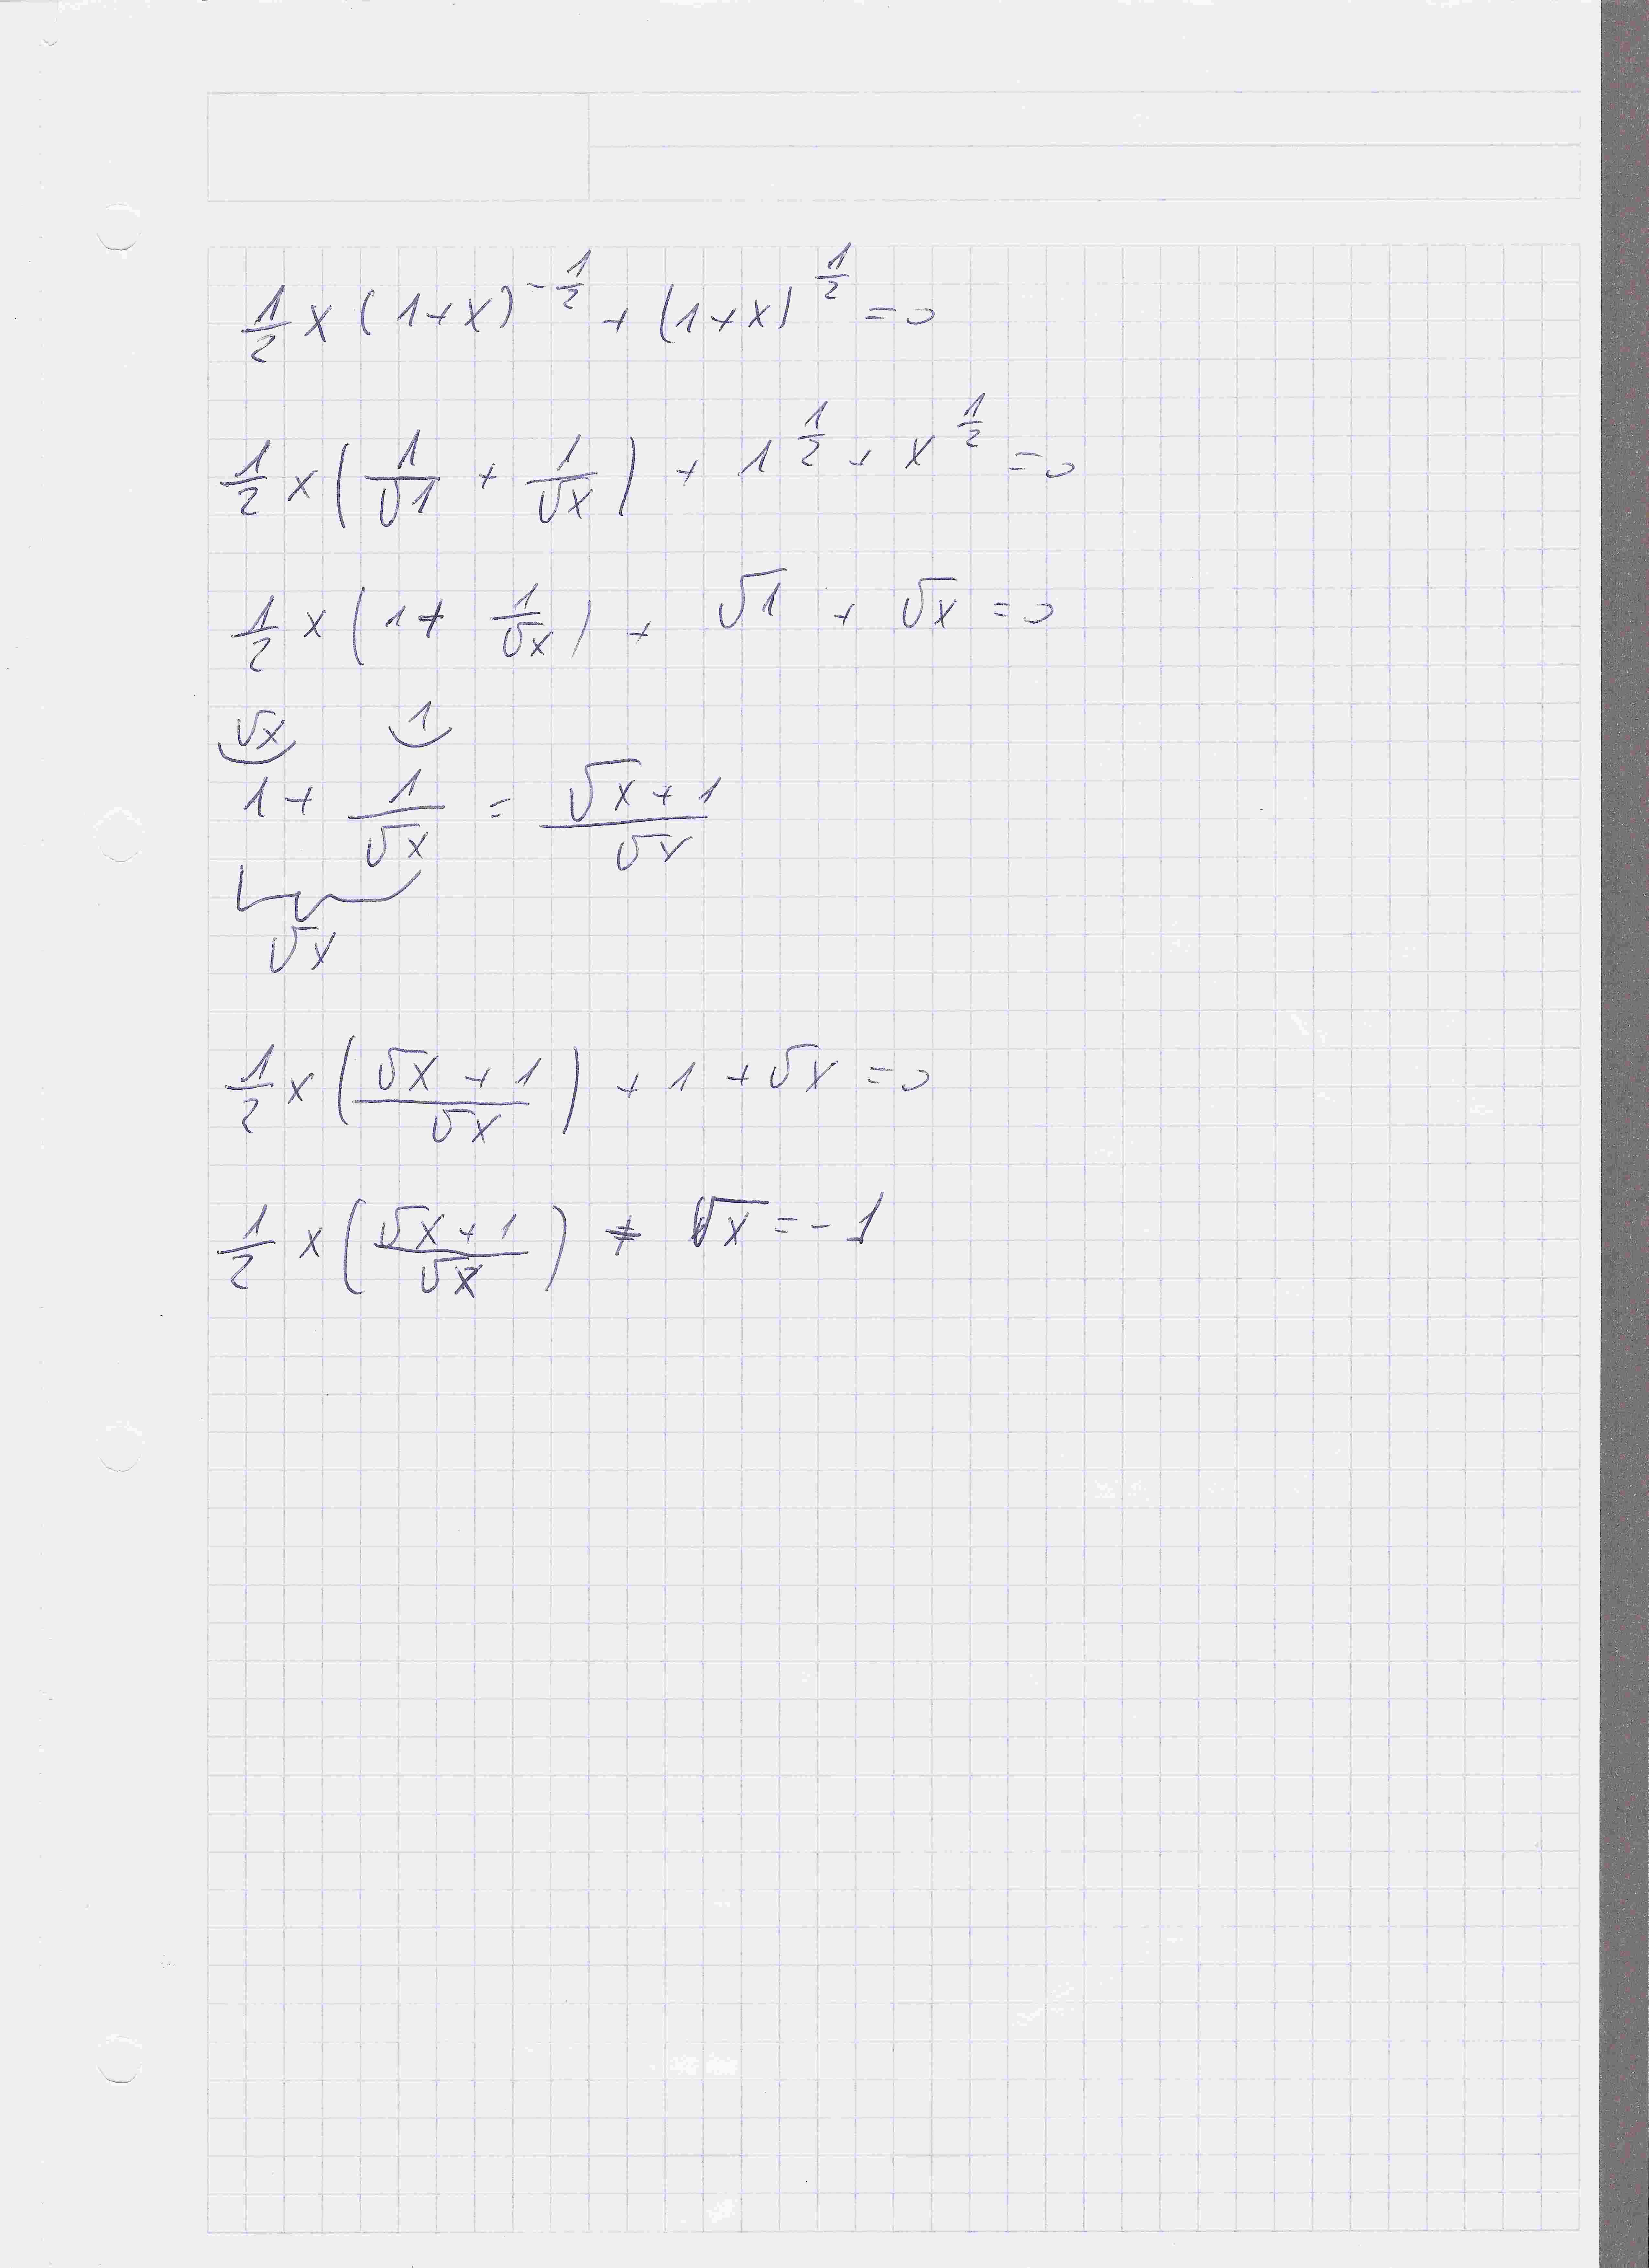 ½ x (1+x)^(-½) + (1+x)^(½) = 0
½ x (1/√1 + 1/√x) + 1^(½) + x^(½) = 0
½ x (1 + 1/√x) + √1 + √x = 0
√x 1
1 + 1/√x = (√x + 1)/√x
√x
½ x ((√x + 1)/√x) + 1 + √x = 0
½ x ((√x + 1)/√x) + √x = -1